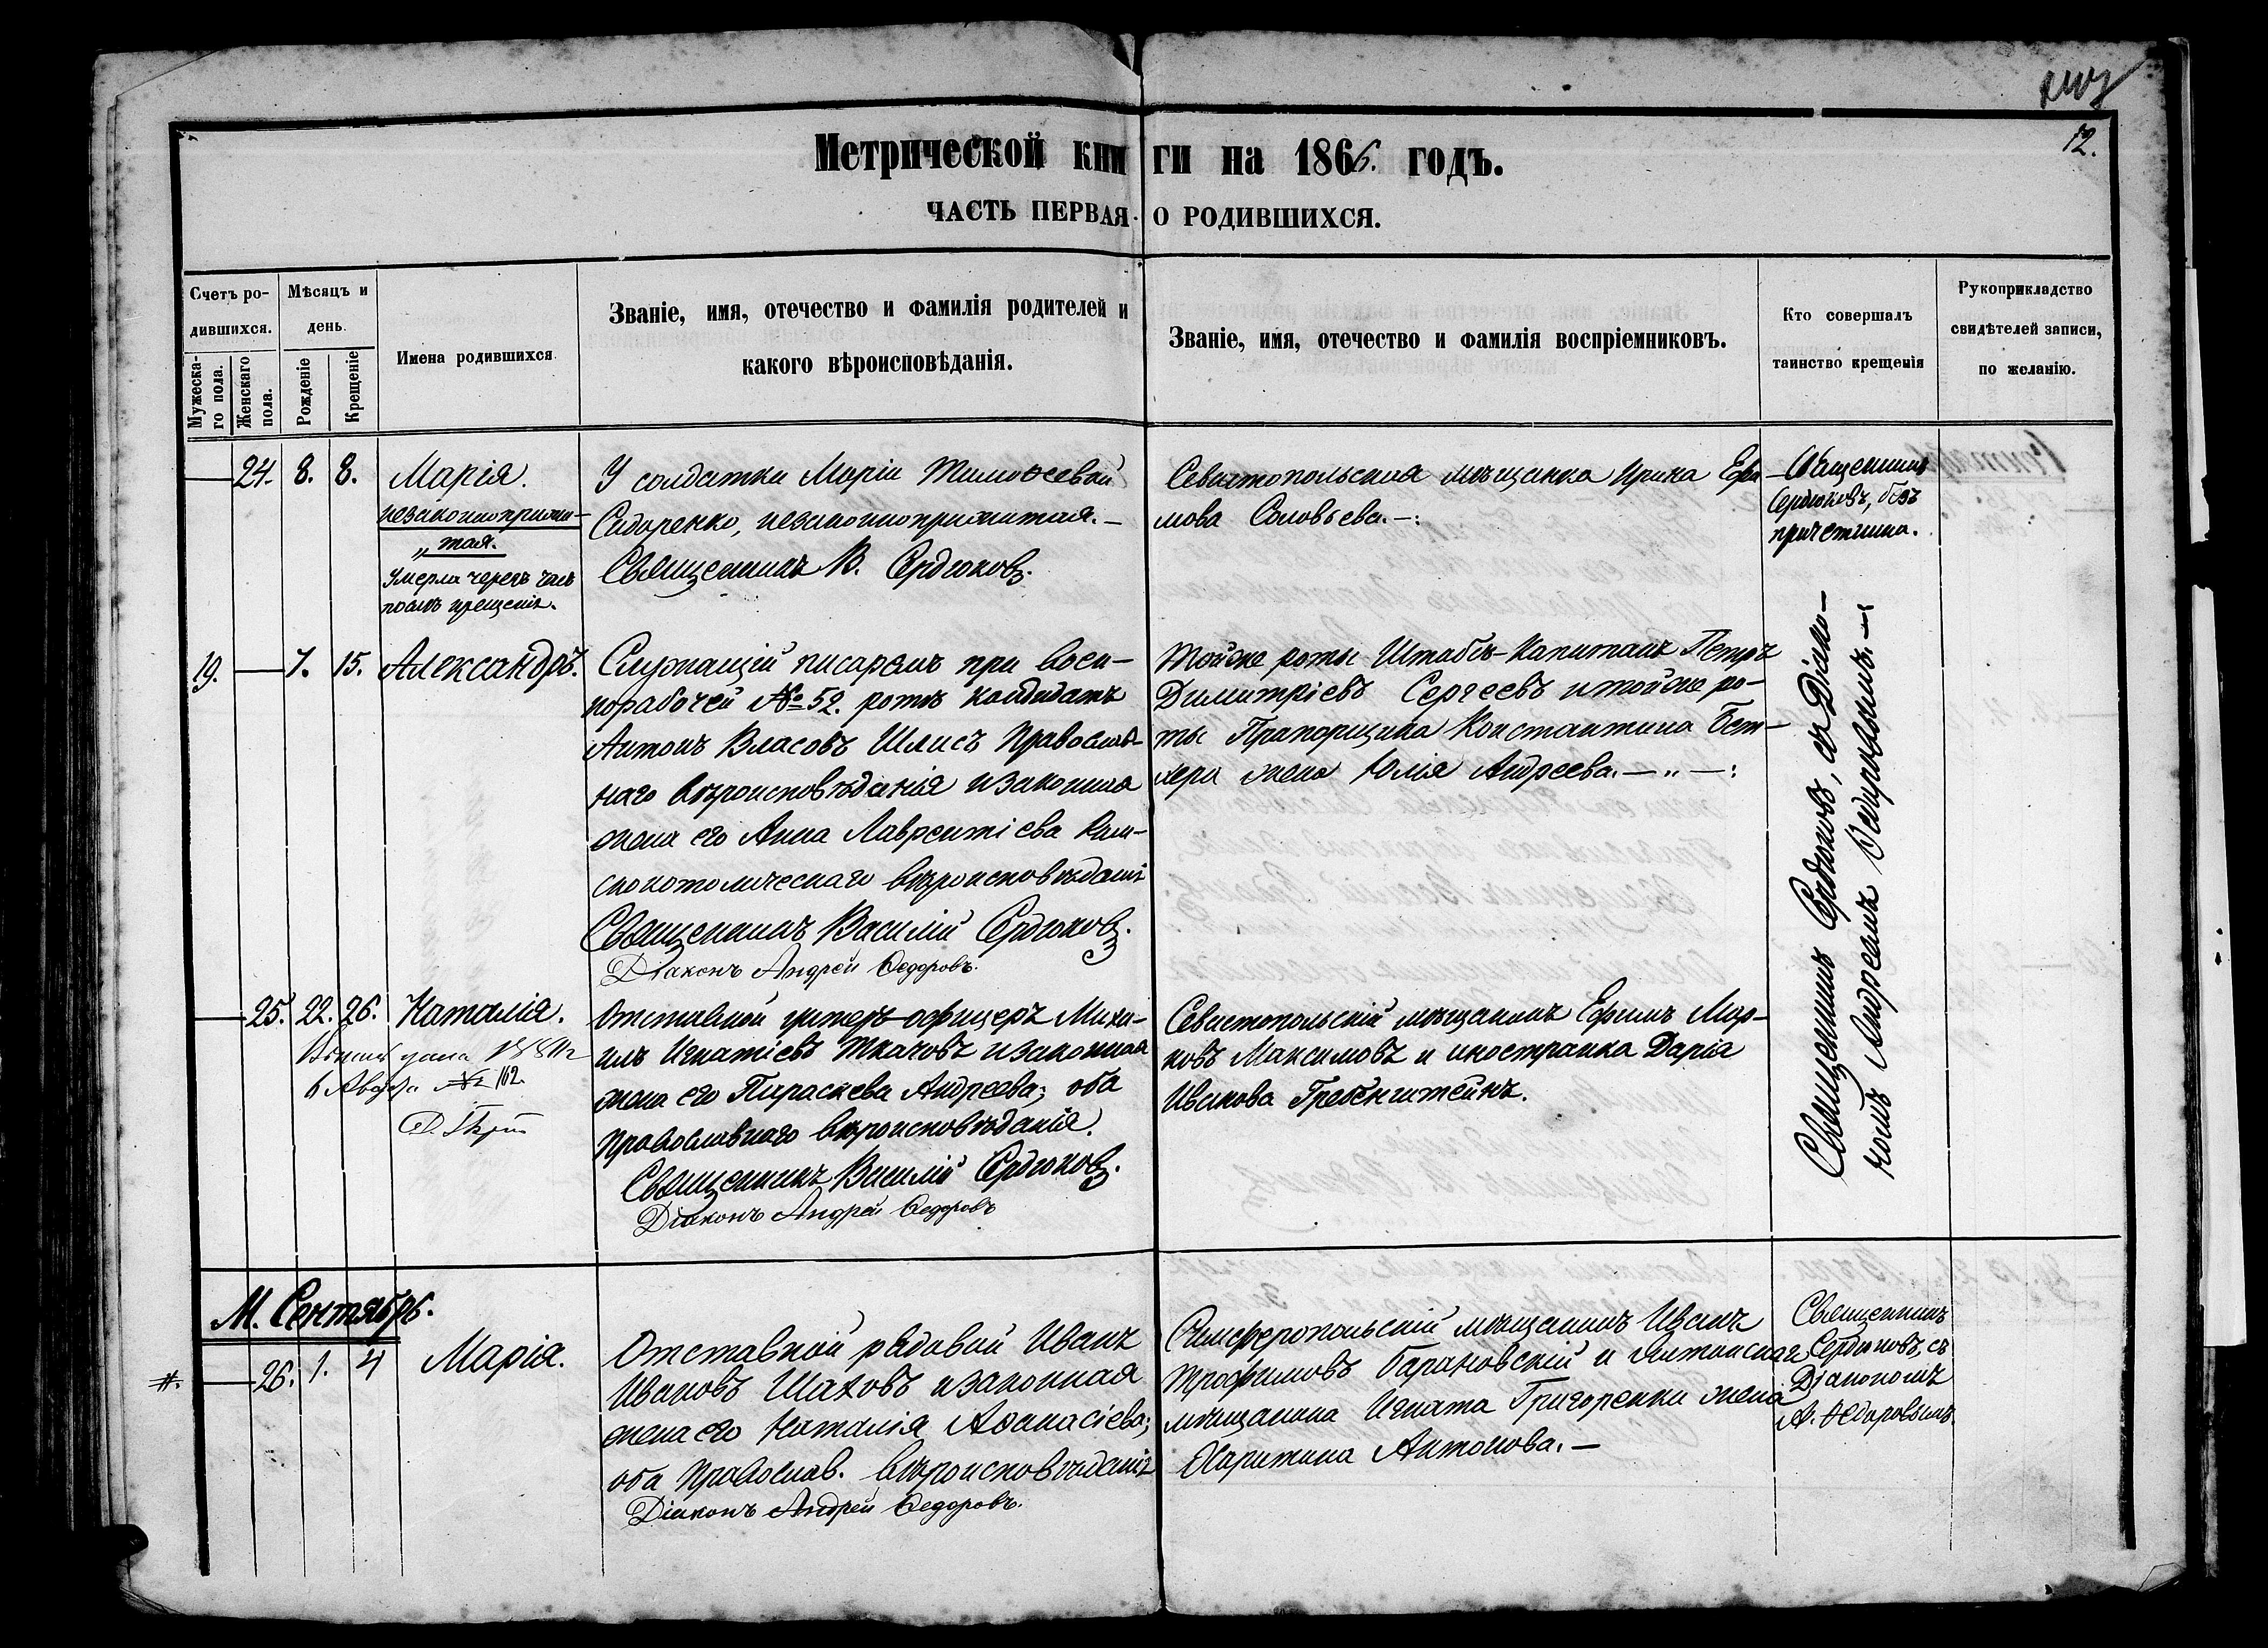 12.
Метрической книги на 1866. годъ.
ЧАСТЬ ПЕРВАЯ. О РОДИВШИХСЯ.
Счетъ родившихся.
Мужескаго пола.
Женскаго пола.
Мѣсяцъ и день.
Рожденіе
Крещеніе
Имена родившихся
Званіе, имя, отечество и фамилія родителей и
какого вѣроисповѣданія.
Званіе, имя, отечество и фамилія воспріемниковъ.
Кто совершалъ
таинство крещенія
Рукоприкладство
свидѣтелей записи,
по желанію.
24. 8. 8.
Марія.
незаконноприжи-
„тая.
Умерла черезъ часъ
послѣ крещенія.
У солдатки Маріи Тимоѳеевой
Сидоренко, незаконноприжитая.—
Священникъ В. Сердюковъ.
Севастопольская мѣщанка Ирина Ефи-
мова Соловьева.—:
Священникъ
Сердюковъ, безъ
причетника.
19. — 7. 15.
Александръ.
Служащій писаремъ при воен-
норабочей № 52. ротѣ кандидатъ
Антонъ Власовъ Шлисъ Православ-
наго вѣроисповѣданія и законная
жена его Анна Лаврентіева Рим-
скокатолическаго вѣроисповѣданія
Священникъ Василій Сердюковъ.
Діаконъ Андрей Ѳедоровъ.
Тойже роты Штабсъ-Капитанъ Петръ
Димитріевъ Сергеевъ и тойже ро-
ты Прапорщика Константина Бет-
хера жена Юлія Андреева.—„—:
Священникъ Сердюковъ, съ Діако-
номъ Андреемъ Ѳедоровымъ.—:
— 25. 22. 26.
Наталія.
№ 162.
Отставной унтеръ-офицеръ Миха-
илъ Игнатіевъ Ткачовъ и законная
жена его Параскева Андреева; оба
Православнаго вѣроисповѣданія.
Священникъ Василій Сердюковъ.
Діаконъ Андрей Ѳедоровъ
Севастопольскій мѣщанинъ Ефимъ Мар-
ковъ Максимовъ и иностранка Дарія
Иванова Гребенштейнъ.
М. Сентябрь.
#. — 26. 1. 4
Марія.
Отставной рядовой Иванъ
Ивановъ Шаховъ и законная
жена его Наталія Аѳанасіева;
оба Православ. вѣроисповѣданія
Діаконъ Андрей Ѳедоровъ.
Симферопольскій мѣщанинъ Иванъ
Трофимовъ Барановскій и Ялтинскаго
мѣщанина Игната Григоренки жена
Харитина Антонова.—
Священникъ
Сердюковъ, съ
Діакономъ
А. Ѳедоровымъ.